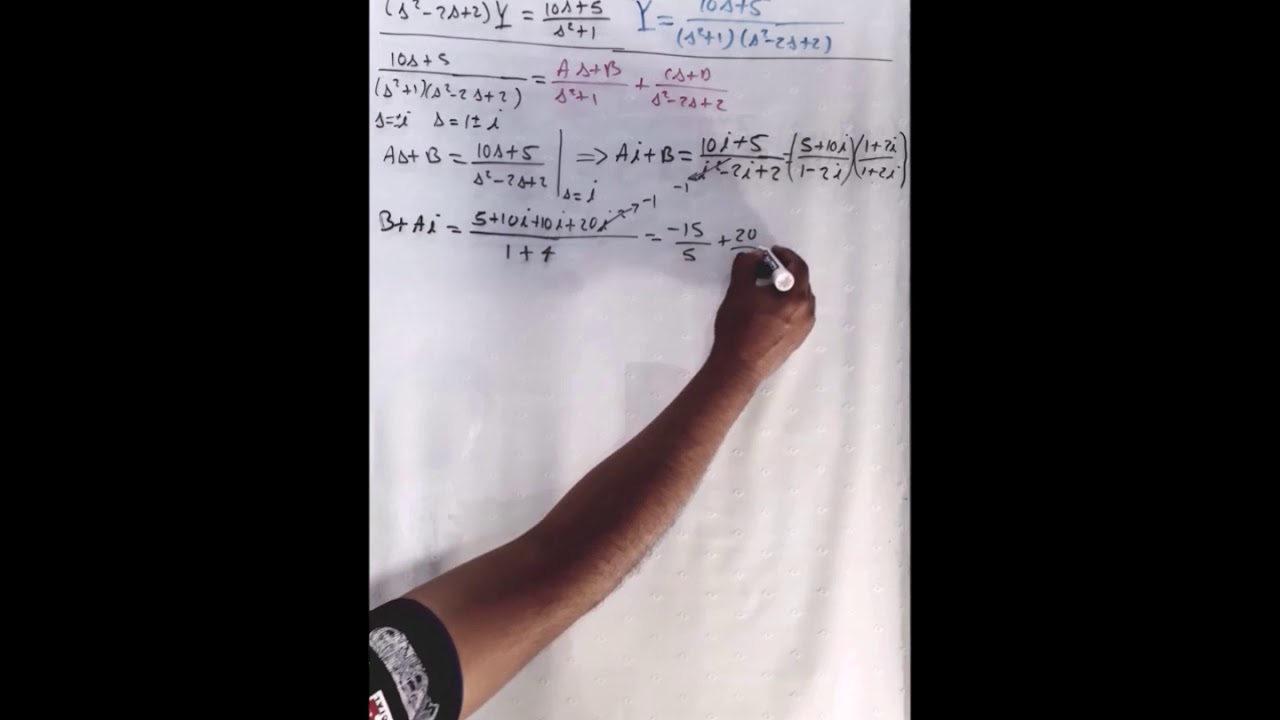 (s²-2s+2)Y = 10s+5/s²+1 Y = 10s+5/(s²+1)(s²-2s+2)
10s+5/(s²+1)(s²-2s+2) = As+B/s²+1 + Cs+D/s²-2s+2
s=±i s=1±i
As+B = 10s+5/s²-2s+2 | s=i => Ai+B = 10i+5/i²-2i+2 = (5+10i/1-2i)(1+2i/1+2i)
-1
B+Ai = 5+10i+10i+20i²/1+4 -1 = -15/5 + 20